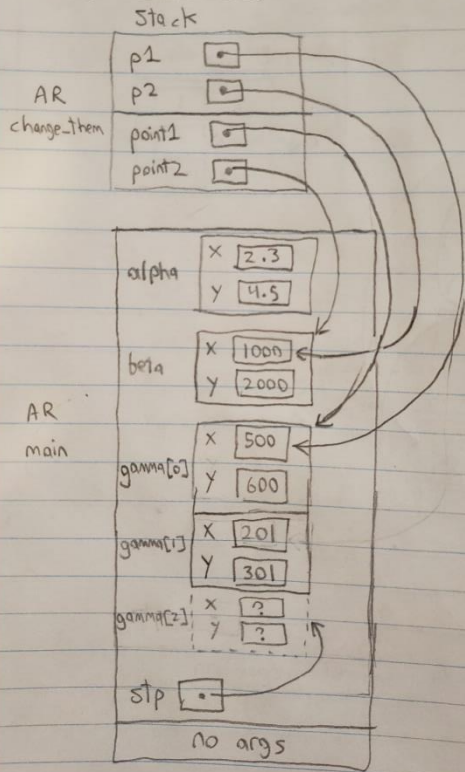 Stack
p1
p2
AR
change_them
point1
point2
alpha
X 2.3
Y 4.5
beta
X 1000
Y 2000
AR
main
gamma[0]
X 500
Y 600
gamma[1]
X 201
Y 301
gamma[2]
X ?
Y ?
stp
no args